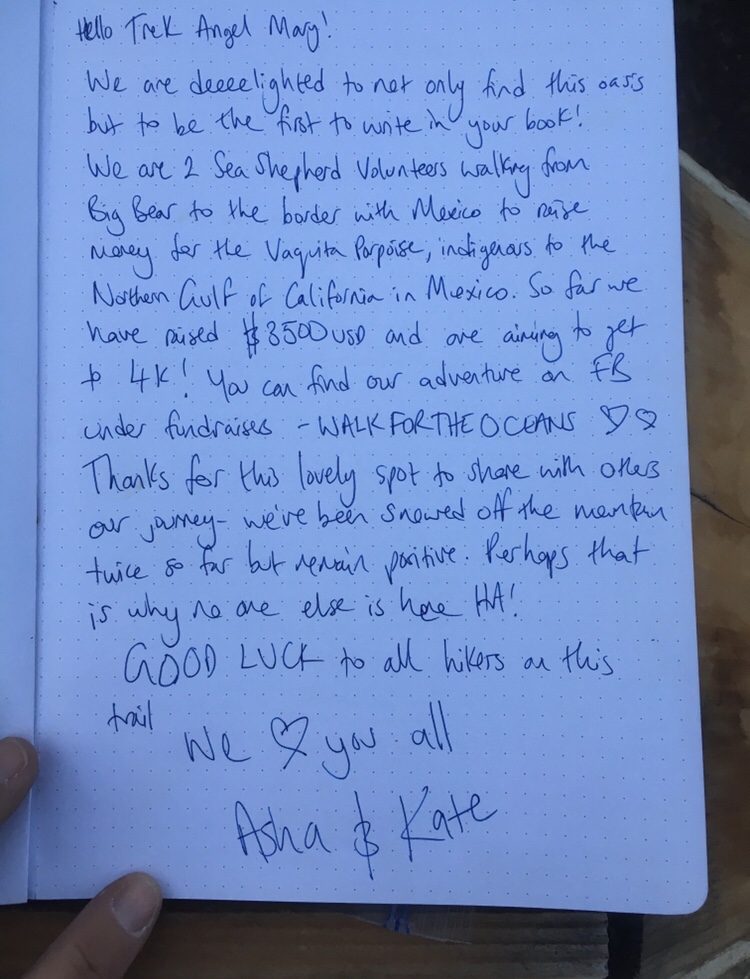 Hello Trek Angel Mary!
We are deeeelighted to not only find this oasis
but to be the first to write in your book!
We are 2 Sea Shepherd Volunteers walking from
Big Bear to the border with Mexico to raise
money for the Vaquita Porpoise, indigenous to the
Northern Gulf of California in Mexico. So far we
have raised $3500 USD and are aiming to get
to 4K! You can find our adventure on FB
under fundraises - WALK FOR THE OCEANS ♡♡
Thanks for this lovely spot to share with others
our journey - we've been snowed off the mountain
twice so far but remain positive. Perhaps that
is why no one else is here HA!
GOOD LUCK to all hikers on this
trail
We ♡ you all
Asha & Kate